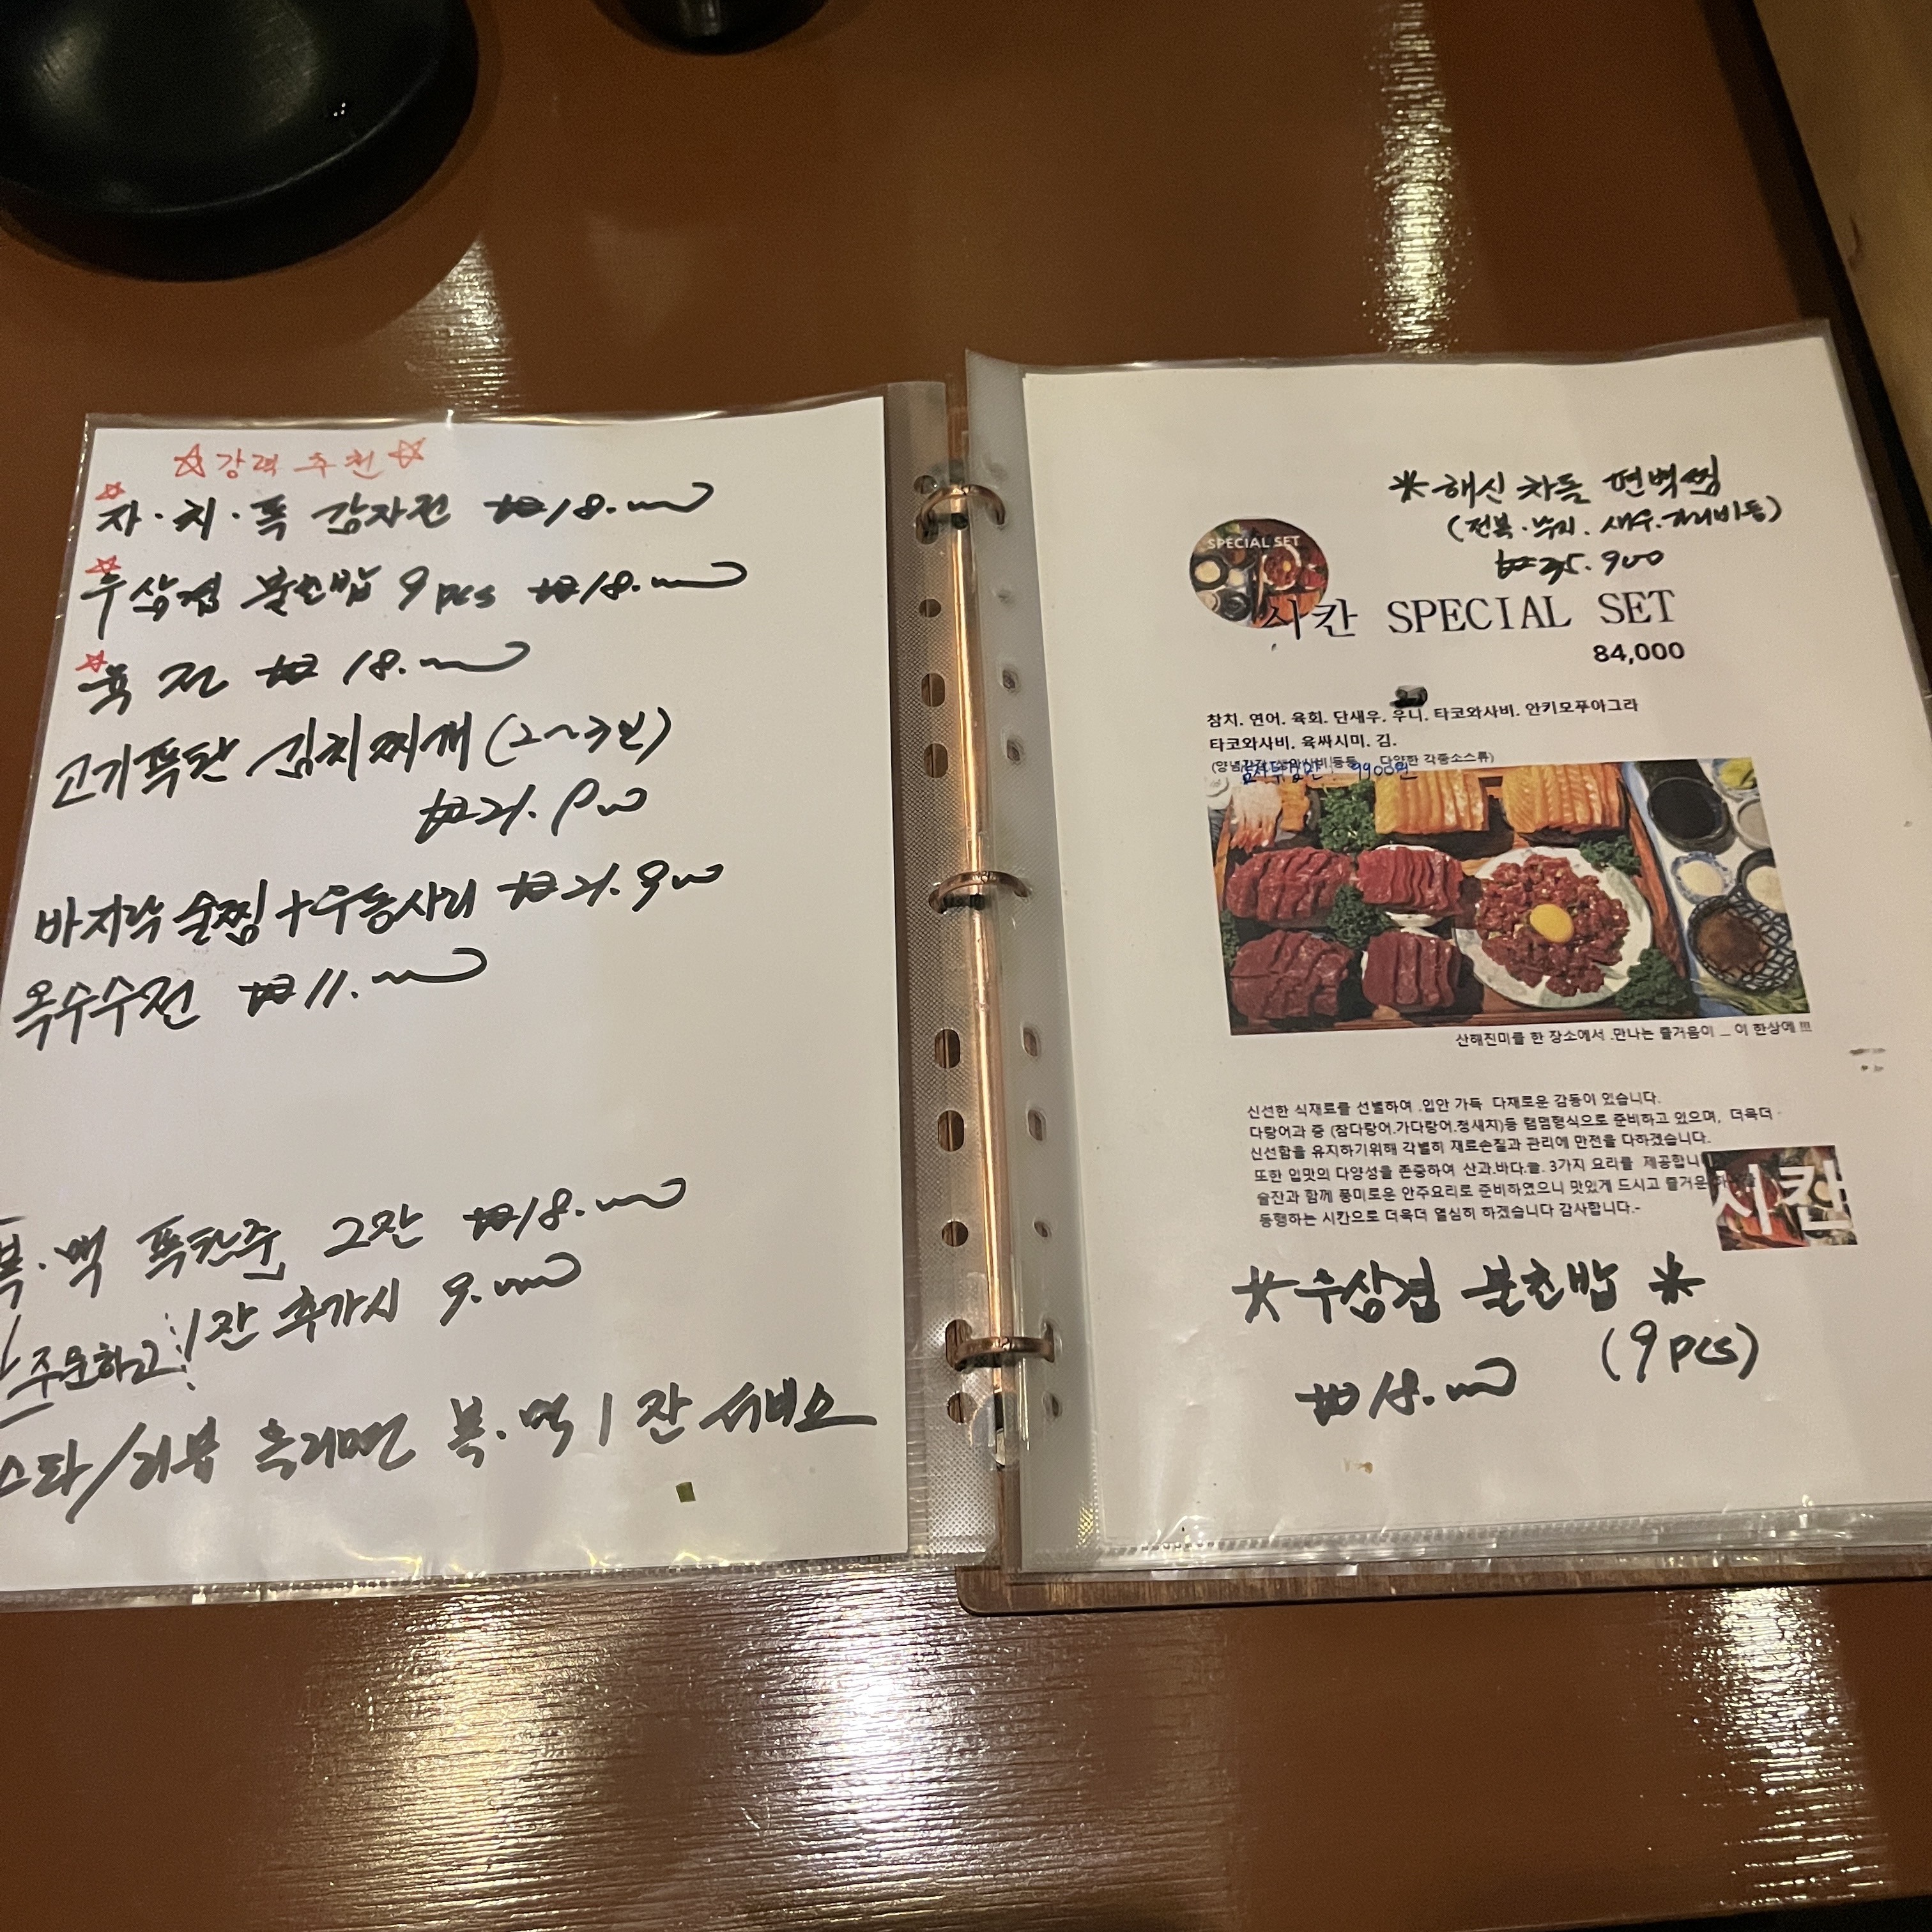 ☆강력 추천☆
☆자·치·폭 감자전 ₩18.000
☆우삼겹 불초밥 9pcs ₩18.000
☆육전 ₩18.000
고기폭탄 김치찌개(2~3인)
₩21.900
바지락술찜+우동사리 ₩21.900
옥수수전 ₩11.000
복·맥 폭탄주 2잔 ₩18.000
1잔 추가시 9.000
주문하고!
스타/리뷰 올리면 복·맥 1잔 서비스
*해신 차돌 편백찜
(전복.낙지.새우.가리비등)
₩35.900
SPECIAL SET
시칸 SPECIAL SET
84,000
참치. 연어. 육회. 단새우. 우니. 타코와사비. 안키모푸아그라
타코와사비. 육싸시미. 김.
(양념간장.생와사비등등 다양한 각종소스류)
9900원
산해진미를 한 장소에서 .만나는 즐거움이 ... 이 한상에 !!!
신선한 식재료를 선별하여 .입안 가득 다채로운 감동이 있습니다.
다랑어과 중 (참다랑어.가다랑어.청새치)등 램덤형식으로 준비하고 있으며, 더욱더
신선함을 유지하기위해 각별히 재료손질과 관리에 만전을 다하겠습니다.
또한 입맛의 다양성을 존중하여 산과.바다.들. 3가지 요리를 제공합니
술잔과 함께 풍미로운 안주요리로 준비하였으니 맛있게 드시고 즐거운
동행하는 시칸으로 더욱더 열심히 하겠습니다 감사합니다.-
시칸
*우삼겹 불초밥*
(9pcs)
₩18.000